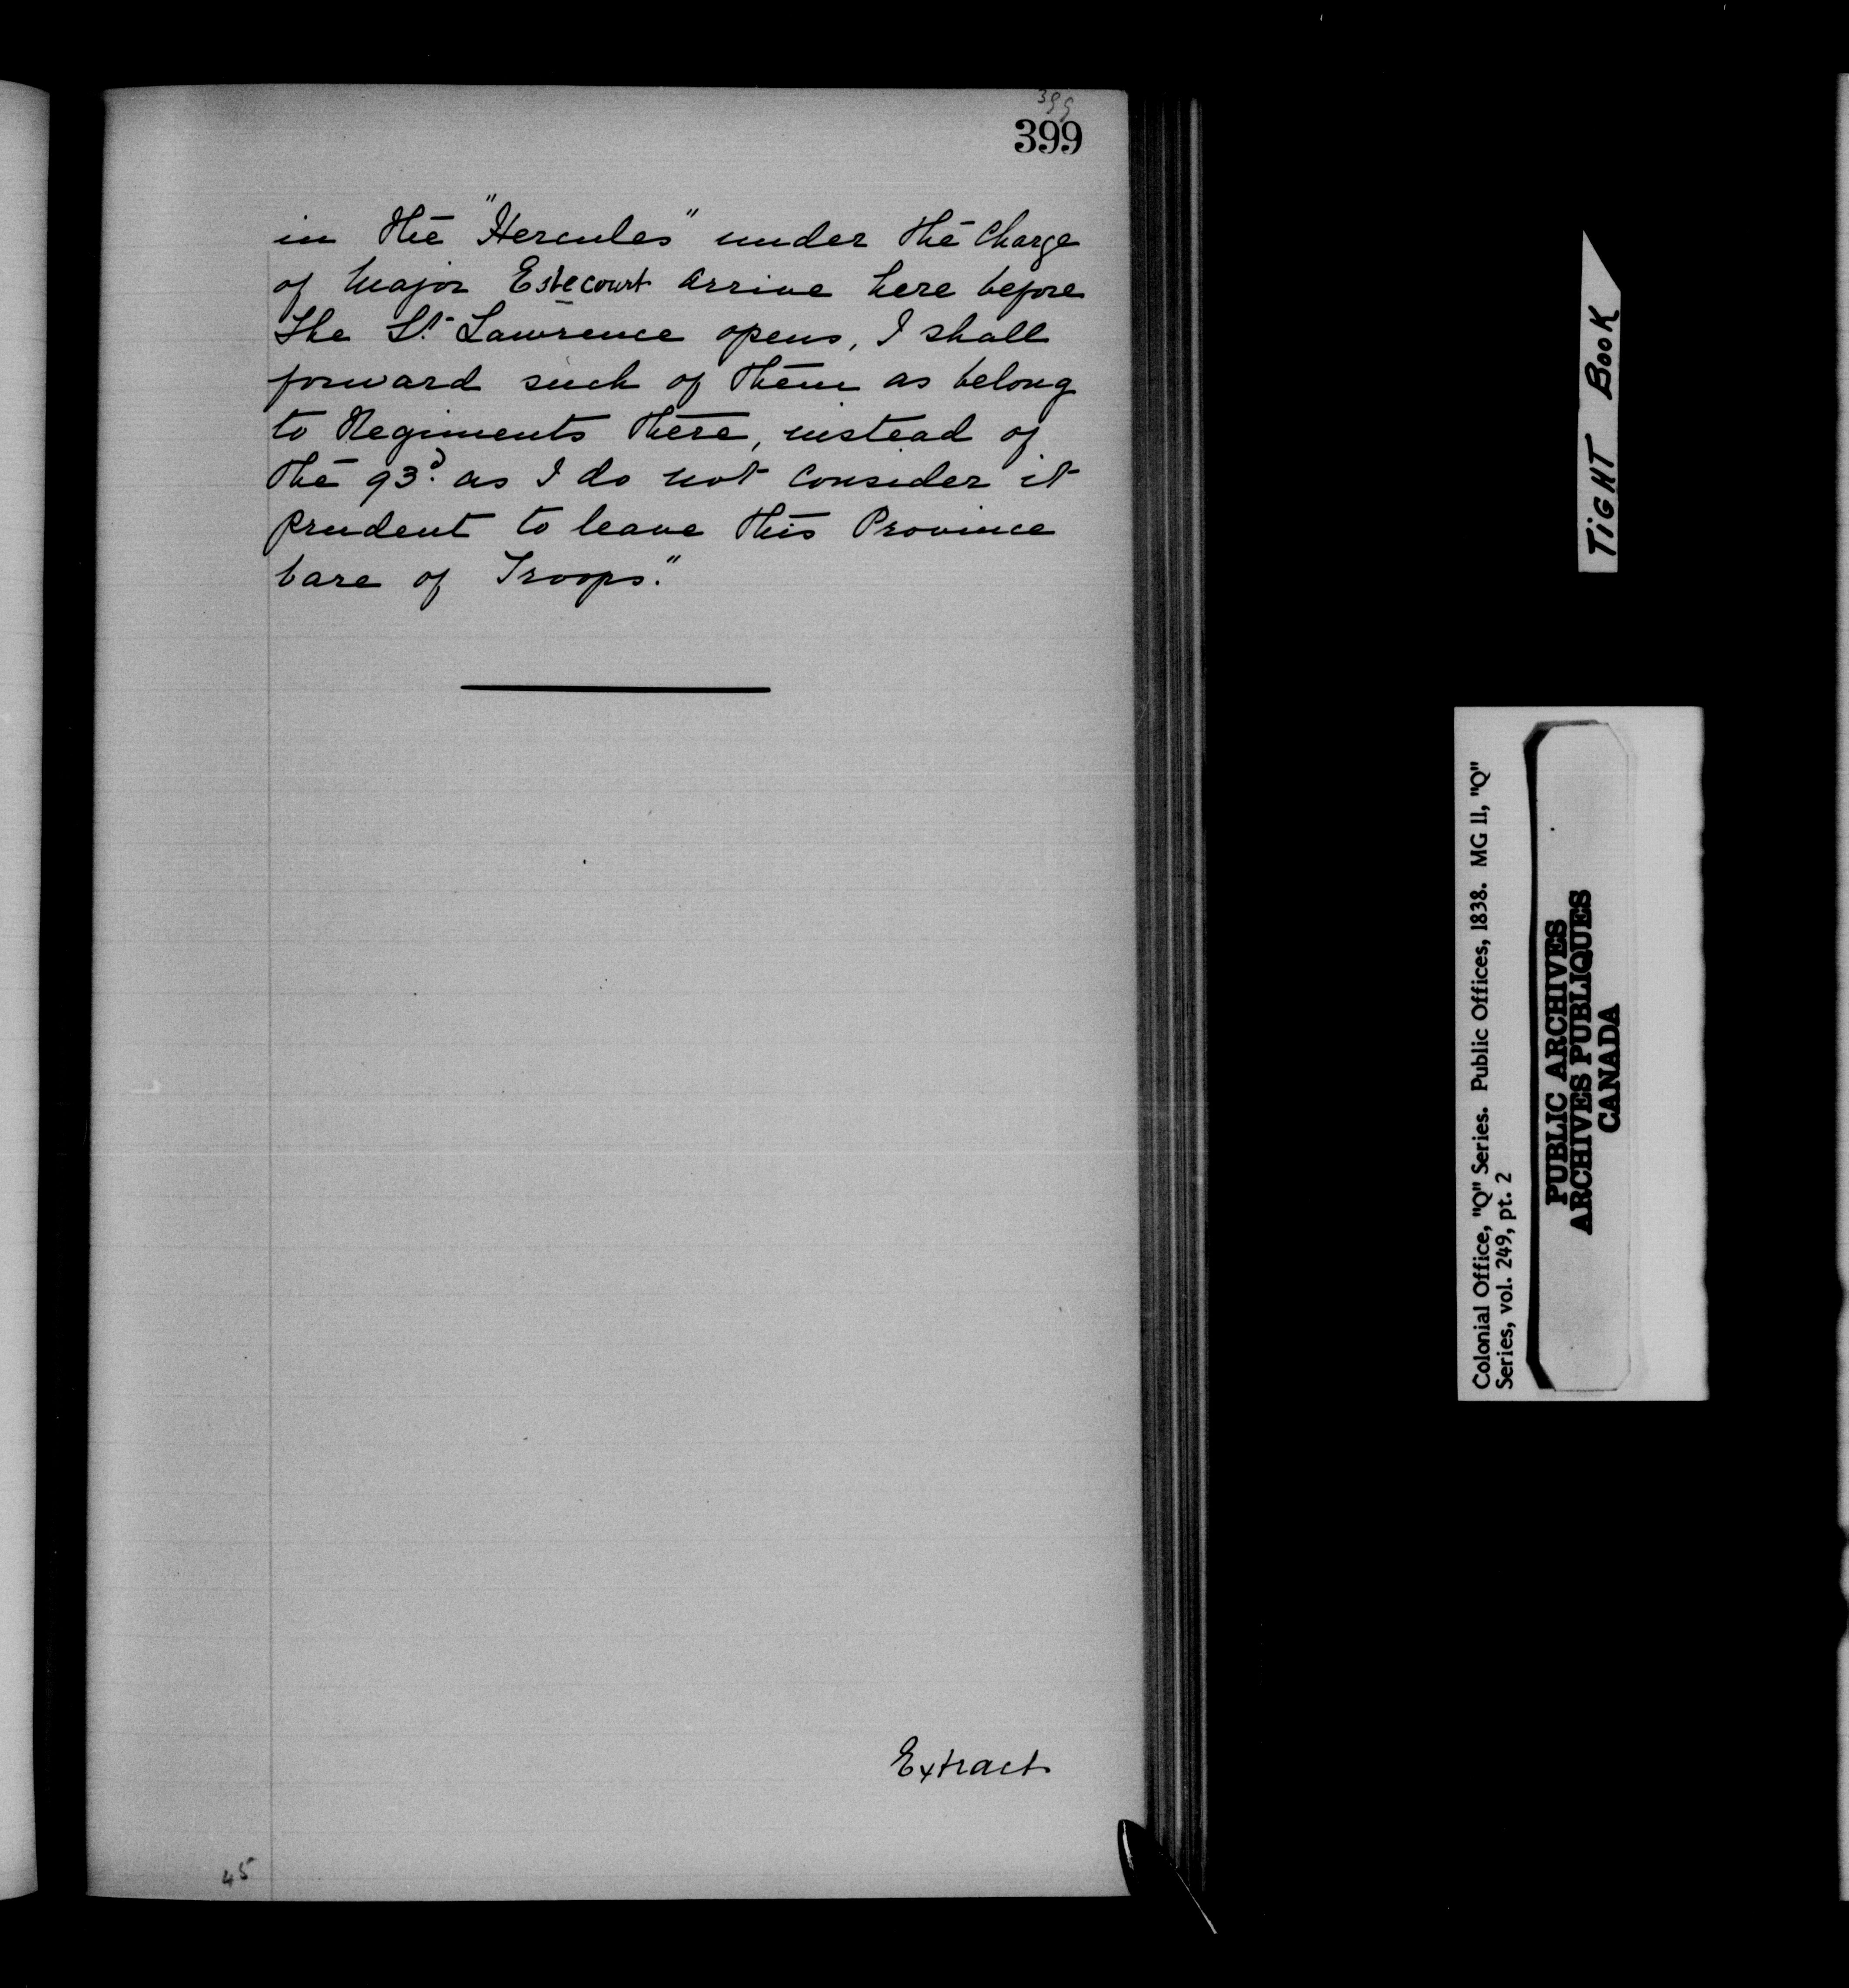 399
399
in the "Hercules" under the Charge
of Major Estecourt arrive here before
the St. Lawrence opens, I shall
forward such of them as belong
to Regiments there, instead of
the 93d. as I do not consider it
prudent to leave this Province
bare of Troops."
Extract
45
TIGHT BOOK
Colonial Office, "Q" Series. Public Offices, 1838. MG 11, "Q"
Series, vol. 249, pt. 2
PUBLIC ARCHIVES
ARCHIVES PUBLIQUES
CANADA